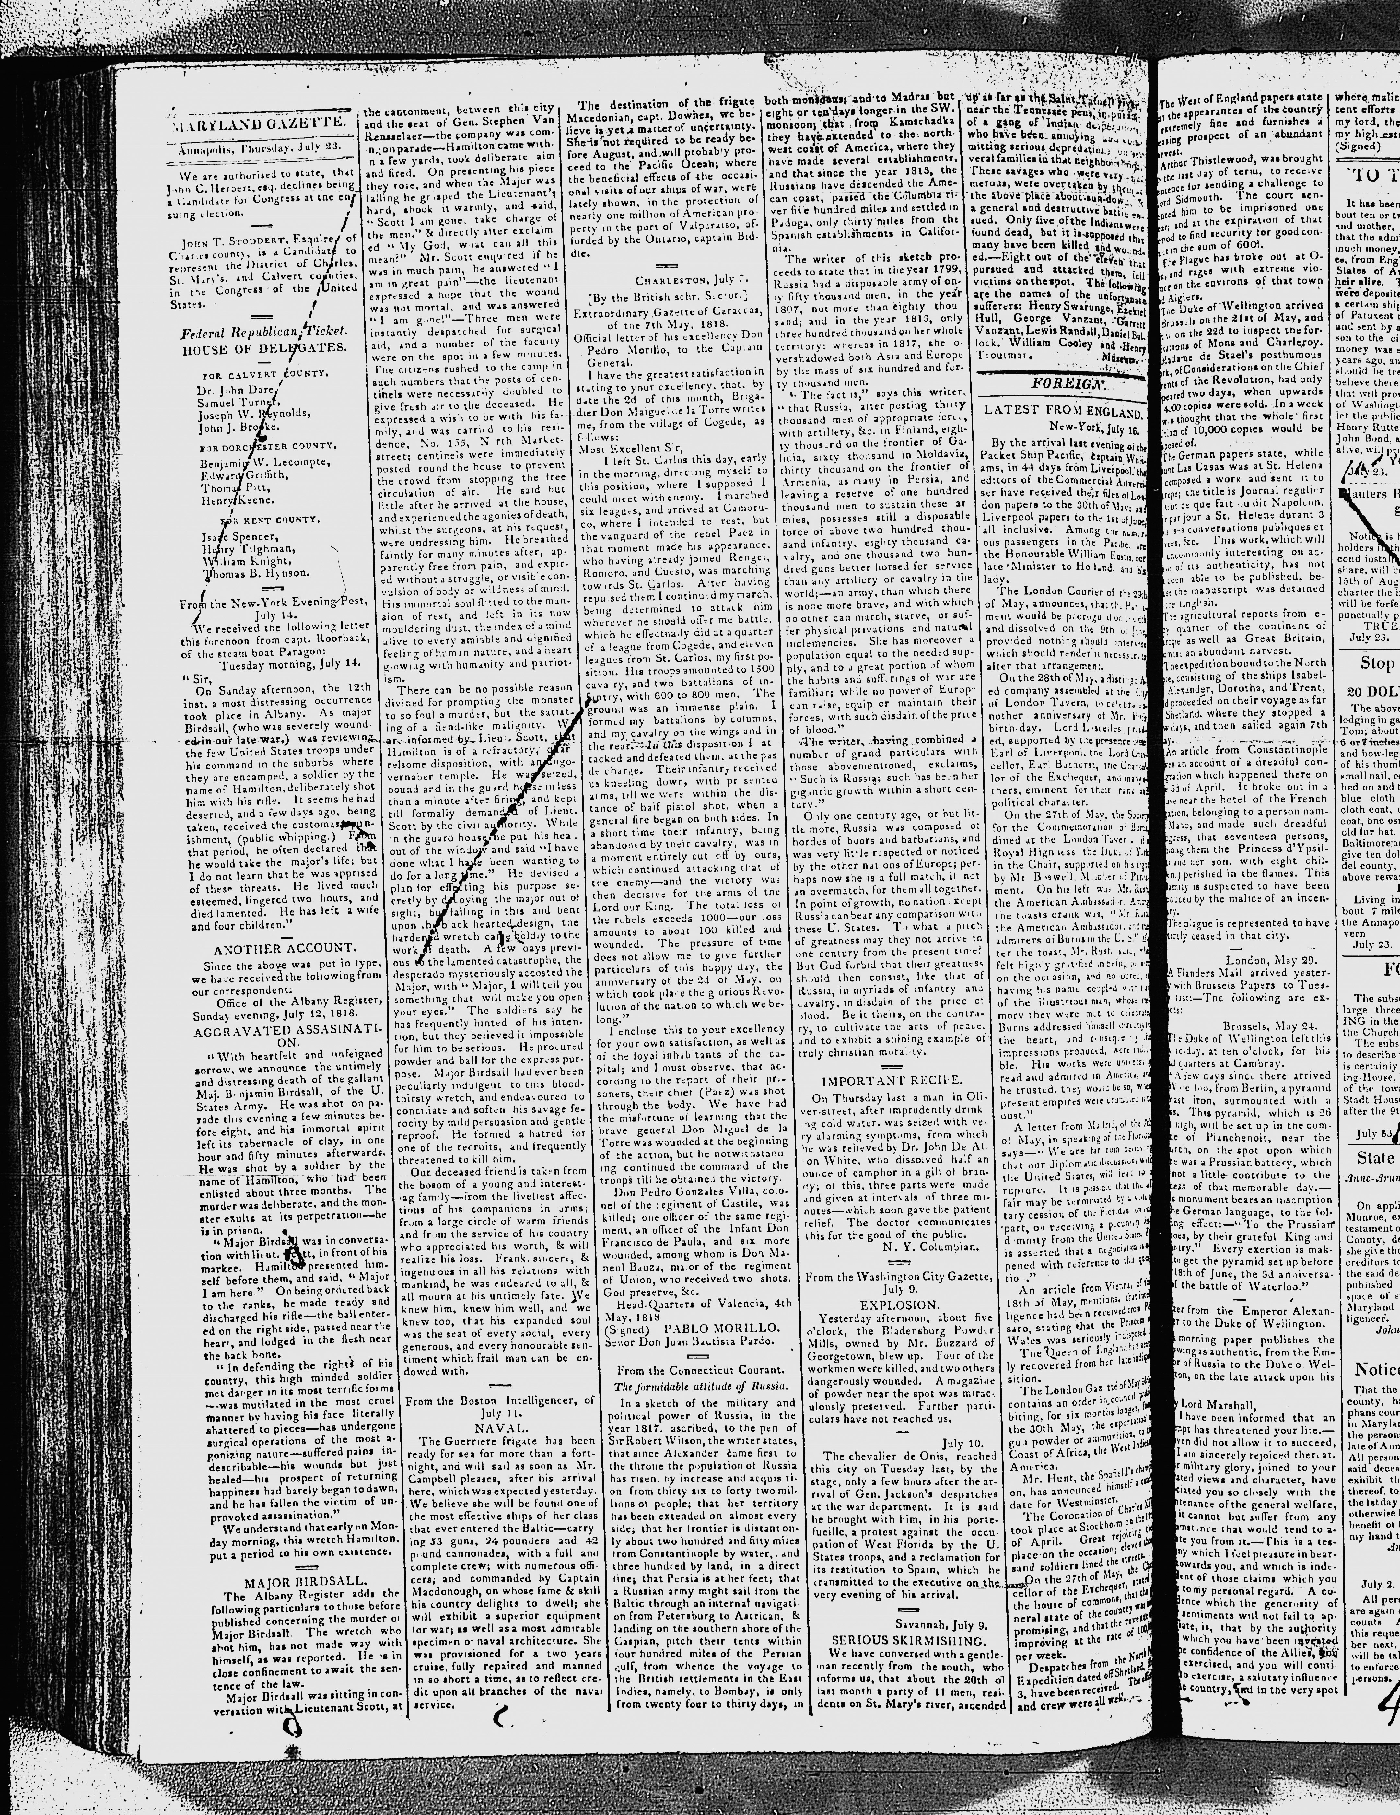 MARYLAND GAZETTE.
Annapolis, Thursday, July 23.
We are authorised to state, that
John C. Herbert, esq. declines being
a Candidate for Congress at the en-
suing election.
JOHN T. STODDERT, Esquire, of
Charles county, is a Candidate to
represent the District of Charles,
St. Mary's, and Calvert counties,
in the Congress of the United
States.
Federal Republican Ticket.
HOUSE OF DELEGATES.
FOR CALVERT COUNTY,
Dr. John Dare,
Samuel Turner,
Joseph W. Reynolds,
John J. Brooke.
FOR DORCHESTER COUNTY,
Benjamin W. Lecompte,
Edward Griffith,
Thomas Pitt,
Henry Keene.
FOR KENT COUNTY,
Isaac Spencer,
Henry Tilghman,
William Knight,
Thomas B. Hynson.
From the New-York Evening Post,
July 14.
We received the following letter
this forenoon from capt. Roorback,
of the steam boat Paragon:
Tuesday morning, July 14.
"Sir,
On Sunday afternoon, the 12th
inst. a most distressing occurrence
took place in Albany. As major
Birdsall, (who was severely wound-
ed in our late war,) was reviewing
the few United States troops under
his command in the suburbs where
they are encamped, a soldier by the
name of Hamilton, deliberately shot
him with his rifle. It seems he had
deserted, and a few days ago, being
taken, received the customary pun-
ishment, (public whipping.) From
that period, he often declared that
he would take the major's life; but
I do not learn that he was apprised
of these threats. He lived much
esteemed, lingered two hours, and
died lamented. He has left a wife
and four children."
ANOTHER ACCOUNT.
Since the above was put in type,
we have received the following from
our correspondent:
Office of the Albany Register,
Sunday evening, July 12, 1818.
AGGRAVATED ASSASINATI-
ON.
"With heartfelt and unfeigned
sorrow, we announce the untimely
and distressing death of the gallant
Maj. Benjamin Birdsall, of the U.
States Army. He was shot on pa-
rade this evening a few minutes be-
fore eight, and his immortal spirit
left its tabernacle of clay, in one
hour and fifty minutes afterwards.
He was shot by a soldier by the
name of Hamilton, who had been
enlisted about three months. The
murder was deliberate, and the mon-
ster exults at its perpetration—he
is in prison.
"Major Birdsall was in conversa-
tion with lieut. Scott, in front of his
markee. Hamilton presented him-
self before them, and said, "Major
I am here" On being ordered back
to the ranks, he made ready and
discharged his rifle—the ball enter-
ed on the right side, passed near the
heart, and lodged in the flesh near
the back bone.
"In defending the rights of his
country, this high minded soldier
met danger in its most terrific forms
—was mutilated in the most cruel
manner by having his face literally
shattered to pieces—has undergone
surgical operations of the most a-
gonizing nature—suffered pains in-
describable—his wounds but just
healed—his prospect of returning
happiness had barely began to dawn,
and he has fallen the victim of un-
provoked assassination."
We understand that early on Mon-
day morning, this wretch Hamilton,
put a period to his own existence.
MAJOR BIRDSALL.
The Albany Register adds the
following particulars to those before
published concerning the murder of
Major Birdsall. The wretch who
shot him, has not made way with
himself, as was reported. He is in
close confinement to await the sen-
tence of the law.
Major Birdsall was sitting in con-
versation with Lieutenant Scott, at
the cantonment, between this city
and the seat of Gen. Stephen Van
Rensselaer—the company was com-
ing on parade—Hamilton came with-
in a few yards, took deliberate aim
and fired. On presenting his piece
they rose, and when the Major was
falling he grasped the Lieutenant's
hand, shook it warmly, and said,
"Scott I am gone, take charge of
the men," & directly after exclaim-
ed "My God, what can all this
mean?" Mr. Scott enquired if he
was in much pain, he answered "I
am in great pain"—the lieutenant
expressed a hope that the wound
was not mortal, and was answered
"I am gone!"—Three men were
instantly despatched for surgical
aid, and a number of the faculty
were on the spot in a few minutes.
The citizens rushed to the camp in
such numbers that the posts of cen-
tinels were necessarily doubled to
give fresh air to the deceased. He
expressed a wish to be with his fa-
mily, and was carried to his resi-
dence, No. 155, North Market-
street; centinels were immediately
posted round the house to prevent
the crowd from stopping the free
circulation of air. He said but
little after he arrived at the house,
and experienced the agonies of death,
whilst the surgeons, at his request,
were undressing him. He breathed
faintly for many minutes after, ap-
parently free from pain, and expir-
ed without a struggle, or visible con-
vulsion of body or wildness of mind.
His immortal soul flitted to the man-
sion of rest, and left in its now
mouldering dust, the index of a mind
alive to every amiable and dignified
feeling of human nature, and a heart
glowing with humanity and patriot-
ism.
There can be no possible reason
divined for prompting the monster
to so foul a murder, but the satiat-
ing of a fiendish-like malignity. We
are informed by Lieut. Scott, that
Hamilton is of a refractory, quar-
relsome disposition, with an ungo-
vernable temper. He was seized,
bound and in the guard house in less
than a minute after firing, and kept
till formally demanded of Lieut.
Scott by the civil authority. While
in the guard house he put his head
out of the window and said "I have
done what I have been wanting to
do for a long time." He devised a
plan for effecting his purpose se-
cretly by decoying the major out of
sight, but failing in this and bent
upon his black hearted design, the
hardened wretch calls boldly to the
work of death. A few days previ-
ous to the lamented catastrophe, the
desperado mysteriously accosted the
Major, with "Major, I will tell you
something that will make you open
your eyes." The soldiers say he
has frequently hinted of his inten-
tion, but they believed it impossible
for him to be serious. He procured
powder and ball for the express pur-
pose. Major Birdsall had ever been
peculiarly indulgent to this blood-
thirsty wretch, and endeavoured to
conciliate and soften his savage fe-
rocity by mild persuasion and gentle
reproof. He formed a hatred for
one of the recruits, and frequently
threatened to kill him.
Our deceased friend is taken from
the bosom of a young and interest-
ing family—from the liveliest affec-
tions of his companions in arms;
from a large circle of warm friends
and from the service of his country
who appreciated his worth, & will
realize his loss. Frank, sincere, &
ingenuous in all his relations with
mankind, he was endeared to all, &
all mourn at his untimely fate. We
knew him, knew him well, and we
knew too, that his expanded soul
was the seat of every social, every
generous, and every honourable sen-
timent which frail man can be en-
dowed with.
From the Boston Intelligencer, of
July 11.
NAVAL.
The Guerriere frigate has been
ready for sea for more than a fort-
night, and will sail as soon as Mr.
Campbell pleases, after his arrival
here, which was expected yesterday.
We believe she will be found one of
the most effective ships of her class
that ever entered the Baltic—carry-
ing 53 guns, 24 pounders and 42
pound cannonades, with a full and
complete crew; with numerous offi-
cers, and commanded by Captain
Macdonough, on whose fame & skill
his country delights to dwell; she
will exhibit a superior equipment
for war; as well as a most admirable
specimen of naval architecture. She
was provisioned for a two years
cruise, fully repaired and manned
in so short a time, as to reflect cre-
dit upon all branches of the naval
service.
The destination of the frigate
Macedonian, capt. Downes, we be-
lieve is yet a matter of uncertainty.
She is not required to be ready be-
fore August, and will probably pro-
ceed to the Pacific Ocean; where
the beneficial effects of the occasi-
onal visits of our ships of war, were
lately shown, in the protection of
nearly one million of American pro-
perty in the port of Valparaiso, af-
forded by the Ontario, captain Bid-
dle.
CHARLESTON, July
[By the British schr.
Extraordinary Gazette of Caraccas,
of the 7th May, 1818.
Official letter of his excellency Don
Pedro Morillo, to the Captain
General.
I have the greatest satisfaction in
stating to your excellency, that, by
date the 2d of this month, Briga-
dier Don Maiguel de la Torre writes
me, from the village of Cogede, as
follows:
Most Excellent Sir,
I left St. Carlos this day, early
in the morning, directing myself to
this position, where I supposed I
could meet with enemy. I marched
six leagues, and arrived at Camoru-
co, where I intended to rest, but
the vanguard of the rebel Paez in
that moment made his appearance,
who having already joined Rengel,
Romero, and Cuesto, was marching
towards St. Carlos. After having
repulsed them I continued my march,
being determined to attack him
wherever he should offer me battle,
which he effectually did at a quarter
of a league from Cogede, and eleven
leagues from St. Carlos, my first po-
sition. His troops amounted to 1500
cavalry, and two battalions of in-
fantry, with 600 to 800 men. The
ground was an immense plain. I
formed my battalions by columns,
and my cavalry on the wings and in
the rear. In this disposition I at-
tacked and defeated them, at the pas
de charge. Their infantry received
us kneeling down, with presented
arms, till we were within the dis-
tance of half pistol shot, when a
general fire began on both sides. In
a short time their infantry, being
abandoned by their cavalry, was in
a moment entirely cut off by ours,
which continued attacking that of
the enemy—and the victory was
then decisive for the arms of the
Lord our King. The total loss of
the rebels exceeds 1000—our loss
amounts to about 100 killed and
wounded. The pressure of time
does not allow me to give further
particulars of this happy day, the
anniversary of the 2d of May, on
which took place the glorious Revo-
lution of the nation to which we be-
long."
I enclose this to your excellency
for your own satisfaction, as well as
of the loyal inhabitants of the ca-
pital; and I must observe, that ac-
cording to the report of their pri-
soners, their chief (Paez) was shot
through the body. We have had
the misfortune of learning that the
brave general Don Miguel de la
Torre was wounded at the beginning
of the action, but he notwithstand-
ing continued the command of the
troops till he obtained the victory.
Don Pedro Gonzales Villa, colo-
nel of the regiment of Castile, was
killed; one officer of the same regi-
ment, an officer of the Infant Don
Francisco de Paula, and six more
wounded, among whom is Don Ma-
nuel Bauza, major of the regiment
of Union, who received two shots.
God preserve, &c.
Head-Quarters of Valencia, 4th
May, 1818
(Signed) PABLO MORILLO.
Senor Don Juan Bautista Pardo.
From the Connecticut Courant.
The formidable attitude of Russia.
In a sketch of the military and
political power of Russia, in the
year 1817, ascribed, to the pen of
Sir Robert Wilson, the writer states,
that since Alexander came first to
the throne the population of Russia
has risen, by increase and acquisiti-
on from thirty six to forty two mil-
lions of people; that her territory
has been extended on almost every
side; that her frontier is distant on-
ly about two hundred and fifty miles
from Constantinople by water, and
three hundred by land, in a direct
line; that Persia is at her feet; that
a Russian army might sail from the
Baltic through an internal navigati-
on from Petersburg to Astrican, &
landing on the southern shore of the
Caspian, pitch their tents within
four hundred miles of the Persian
gulf, from whence the voyage to
the British settlements in the East
Indies, namely, to Bombay, is only
from twenty four to thirty days, in
both monsoons; and to Madras but
eight or ten days longer in the SW.
monsoon; that from Kamschadka
they have extended to the north-
west coast of America, where they
have made several establishments,
and that since the year 1813, the
Russians have descended the Ame-
can coast, passed the Columbia ri-
ver five hundred miles and settled in
Padoga, only thirty miles from the
Spanish establishments in Califor-
nia.
The writer of this sketch pro-
ceeds to state that in the year 1799,
Russia had a disposable army of on-
ly fifty thousand men, in the year
1807, not more than eighty thou-
sand; and in the year 1813, only
three hundred thousand on her whole
territory; whereas in 1817, she o-
vershadowed both Asia and Europe
by the mass of six hundred and for-
ty thousand men.
"The fact is," says this writer,
"that Russia, after posting thirty
thousand men of appropriate force,
with artillery, &c. in Finland, eigh-
ty thousand on the frontier of Ga-
licia, sixty thousand in Moldavia,
thirty thousand on the frontier of
Armenia, as many in Persia, and
leaving a reserve of one hundred
thousand men to sustain these ar-
mies, possesses still a disposable
force of above two hundred thou-
sand infantry, eighty thousand ca-
valry, and one thousand two hun-
dred guns better horsed for service
than any artillery or cavalry in the
world;—an army, than which there
is none more brave, and with which
no other can march, starve, or suf-
fer physical privations and natural
inclemencies. She has moreover a
population equal to the needed sup-
ply, and to a great portion of whom
the habits and sufferings of war are
familiar; while no power of Europe
can raise, equip or maintain their
forces, with such disdain of the price
of blood."
The writer, having combined a
number of grand particulars with
those abovementioned, exclaims,
"Such is Russia; such has been her
gigantic growth within a short cen-
tury."
Only one century ago, or but lit-
tle more, Russia was composed of
hordes of boors and barbarians, &
was very little respected or noticed
by the other nations of Europe; per-
haps now she is a full match, if not
an overmatch, for them all together.
In point of growth, no nation except
Russia can bear any comparison with
these U. States. To what a pitch
of greatness may they not arrive in
one century from the present time!
But God forbid that their greatness
should then consist, like that of
Russia, in myriads of infantry and
cavalry, in disdain of the price of
blood. Be it theirs, on the contra-
ry, to cultivate the arts of peace,
and to exhibit a shining example of
truly christian morality.
IMPORTANT RECIPE.
On Thursday last a man in Oli-
ver-street, after imprudently drink-
ing cold water, was seized with ve-
ry alarming symptoms, from which
he was relieved by Dr. John De Al-
ton White, who dissolved half an
ounce of camphor in a gill of bran-
dy; of this, three parts were made
and given at intervals of three mi-
nutes—which soon gave the patient
relief. The doctor communicates
this for the good of the public.
N. Y. Columbian.
From the Washington City Gazette,
July 9.
EXPLOSION.
Yesterday afternoon, about five
o'clock, the Bladensburg Powder
Mills, owned by Mr. Buzzard of
Georgetown, blew up. Four of the
workmen were killed, and two others
dangerously wounded. A magazine
of powder near the spot was mirac-
ulously preserved. Farther parti-
culars have not reached us.
July 10.
The chevalier de Onis, reached
this city on Tuesday last, by the
stage, only a few hours after the ar-
rival of Gen. Jackson's despatches
at the war department. It is said
he brought with him, in his porte-
feuille, a protest against the occu-
pation of West Florida by the U.
States troops, and a reclamation for
its restitution to Spain, which he
transmitted to the executive on the
very evening of his arrival.
Savannah, July 9.
SERIOUS SKIRMISHING.
We have conversed with a gentle-
man recently from the south, who
informs us, that about the 20th of
last month a party of 11 men, resi-
dents on St. Mary's river, ascended
up as far as the Saint
near the Tennessee pens, in pursuit
of a gang of Indian
who have been annoying and com-
mitting serious depredations on se-
veral families in that neighborhood.
These savages who were very nu-
merous, were overtaken by them at
the above place about sun-down,
a general and destructive battle en-
sued. Only five of the Indians were
found dead, but it is supposed that
many have been killed and wound-
ed.—Eight out of the eleven that
pursued and attacked them, fell
victims on the spot. The following
are the names of the unfortunate
sufferers: Henry Swarange, Ezekiel
Hull, George Vanzant, Garrett
Vanzant, Lewis Randall, Daniel Bul-
lock, William Cooley and Henry
Troutman.
Museum.
FOREIGN.
LATEST FROM ENGLAND.
New-York, July 16.
By the arrival last evening of the
Packet Ship Pacific, captain Wil-
ams, in 44 days from Liverpool, the
editors of the Commercial Adverti-
ser have received their files of Lon-
don papers to the 30th of May, and
Liverpool papers to the 1st of June,
all inclusive. Among the numer-
ous passengers in the Pacific, are
the Honourable William Eustis, our
late Minister to Holland, and his
lady.
The London Courier of the 23d
of May, announces, that the Parlia-
ment would be prorogued
and dissolved on the 9th of June,
provided nothing should intervene
which should render it necessary to
alter that arrangement.
On the 28th of May, a distinguish-
ed company assembled at the City
of London Tavern, to celebrate a-
nother anniversary of Mr. Pitt's
birth-day. Lord Liverpool presid-
ed, supported by the presence of the
Earl of Liverpool, the Lord Chan-
cellor, Earl Bathurst, the Chancel-
lor of the Exchequer, and many o-
thers, eminent for their rank and
political character.
On the 27th of May, the Society
for the Commemoration of Burns
dined at the London Tavern. His
Royal Highness the Duke of
in the Chair, supported on his
by Mr. Boswell, Member of Parlia-
ment. On his left was Mr. Rush,
the American Ambassador. Among
the toasts drank was, "Mr. Rush,
the American Ambassador, and the
admirers of Burns in the U. S." Af-
ter the toast, Mr. Rush said, he
felt highly gratified
on the occasion, and no
having his name coupled with that
of the illustrious man, whose me-
mory they were met to celebrate.
Burns addressed himself entirely to
the heart, and consequently the
impressions produced, were indeli-
ble. His works were universally
read and admired in America, and
he trusted, they would be so, when
present empires were crumbled into
dust."
A letter from Madrid, of the
of May, in speaking of the Floridas,
says—"We are far from
that our diplomatic discussions with
the United States, will produce a
rupture. It is passed that the af-
fair may be terminated by a volun-
tary cession of the Floridas on our
part, on receiving a pecuniary in-
demnity from the United States. It
is asserted that a negociation is
pened with reference to
An article from Vienna, of the
18th of May, mentions, that intel-
ligence had been received from Pe-
saro, stating that the Princess of
Wales was seriously indisposed.
The Queen of England has
ly recovered from her late indispo-
sition.
The London Gazette of May
contains an order in council, prohi-
biting, for six months longer, from
the 30th May, the exportation of
gun powder or ammunition, to the
Coast of Africa, the West Indies or
America.
Mr. Hunt, the Spafield's champi-
on, has announced himself a candi-
date for Westminster.
The Coronation of Charles XIV.
took place at Stockholm
of April. Great rejoicings took
place on the occasion; eleven thou-
sand soldiers lined the streets.
On the 27th of May, the Chan-
cellor of the Exchequer, stated in
the house of commons, that the ge-
neral state of the country was
promising, and that the revenue was
improving at the rate of 100,000
per week.
Despatches from the North
Expedition dated off Shetland, May
3, have been received. The officers
and crew were all well.
The West of England papers state
the appearances of the country
extremely fine and furnishes a
prospect of an abundant
harvest.
Arthur Thistlewood, was brought
the last day of term, to receive
sentence for sending a challenge to
Lord Sidmouth. The court sen-
tenced him to be imprisoned one
year; and at the expiration of that
period to find security for good con-
duct in the sum of 600l.
The Plague has broke out at O-
ran, and rages with extreme vio-
lence on the environs of that town
and Algiers.
The Duke of Wellington arrived
at Brussels on the 21st of May, and
left on the 22d to inspect the for-
tifications of Mons and Charleroy.
Madame de Stael's posthumous
work, of Considerations on the Chief
Events of the Revolution, had only
appeared two days, when upwards
of 4,00 copies were sold. In a week
it was thought that the whole first
edition of 10,000 copies would be
disposed of.
The German papers state, while
Count Las Casas was at St. Helena
he composed a work and sent it to
Europe; the title is Journal regulier
de tout ce que fait ou dit Napoleon
jour par jour a St. Helene durant 3
ans, ses conversations publiques et
privees, &c. This work, which will
be uncommonly interesting on ac-
count of its authenticity, has not
been able to be published, be-
cause the manuscript was detained
by the English.
The agricultural reports from e-
very quarter of the continent of
Europe as well as Great Britain,
promise an abundant harvest.
The expedition bound to the North
Pole, consisting of the ships Isabel-
la, Alexander, Dorothea, and Trent,
had proceeded on their voyage as far
as Shetland, where they stopped a
few days, and then sailed again 7th
May.
An article from Constantinople
gives an account of a dreadful con-
flagration which happened there on
the 3d of April. It broke out in a
house near the hotel of the French
Legation, belonging to a person nam-
ed Maes, and made such dreadful
havoc, that seventeen persons,
among them the Princess d'Ypsil-
anti and her son, with eight chil-
dren, perished in the flames. This
calamity is suspected to have been
caused by the malice of an incen-
diary.
The plague is represented to have
entirely ceased in that city.
London, May 29.
A Flanders Mail arrived yester-
day with Brussels Papers to Tues-
day last:—The following are ex-
tracts:
Brussels, May 24.
The Duke of Wellington left this
city to-day, at ten o'clock, for his
head quarters at Cambray.
A few days since there arrived
at Waterloo, from Berlin, a pyramid
of cast iron, surmounted with a
cross. This pyramid, which is 26
feet high, will be set up in the com-
mune of Planchenoit, near the
church, on the spot upon which
there was a Prussian battery, which
did not a little contribute to the
success of that memorable day.—
This monument bears an inscription
in the German language, to the fol-
lowing effect:—"To the Prussian
heroes, by their grateful King and
Country." Every exertion is mak-
ing to get the pyramid set up before
the 18th of June, the 3d anniversa-
ry of the battle of Waterloo."
Letter from the Emperor Alexan-
der to the Duke of Wellington.
A morning paper publishes the
following as authentic, from the Em-
peror of Russia to the Duke of Wel-
lington, on the late attack upon his
life:
My Lord Marshall,
I have been informed that an
attempt has threatened your life.—
Heaven did not allow it to succeed,
and I am sincerely rejoiced thereat.
Your military glory, joined to your
elevated views and character, have
associated you so closely with the
maintenance of the general welfare,
that it cannot but suffer from any
circumstance that would tend to a-
lienate you from it.—This is a tes-
timony which I feel pleasure in bear-
ing towards you, and which is inde-
pendent of those claims which you
have to my personal regard. A co-
incidence which the generosity of
your sentiments will not fail to ap-
preciate, is, that by the authority
with which you have been invested
by the confidence of the Allies, you
have exercised, and you will conti-
nue to exercise, a salutary influence
in that country, and in the very spot
where, malic
cent efforts
my lord, the
my high est
(Signed)
TO T
It has been
bout ten or t
and mother,
that the admi
much money,
ee, from Eng
States of Am
heir alive. T
were deposite
a certain ship
of Patuxent r
and sent by a
son to the ci
money was s
years ago, an
should be tre
believe there
that will prov
of Washingt
let the public
Henry Rutter
John Bond, a
alive, will pl
July 23.
Planters B
Notice is h
holders in
cend instalm
share, will c
15th of Aug
charter the i
will be forfe
punctually p
July 23.
Stop
20 DOL
The above
lodging in ga
Tom; about
6 or 7 inches
and two leg
of his thumb
small nail, o
had on and t
blue cloth
cloth coat, o
coat, one os
old fur hat.
Baltimore a
give ten dol
del county,
above rewar
Living in
bout 7 mile
the Annapo
vern
July 23.
FO
The subs
large three
ING in the
the Church
The subs
to describe
is certainly
ing-House.
of the low
Stadt House
after the 91
July 53
State
Anne-Arun
On appli
Munroe, ex
testament o
County, de
she give the
creditors to
the said de
published
space of s
Maryland
ligencer.
John
Notice
That the
county, ha
phans cour
in Marylan
the person
late of Ann
All person
said deces
exhibit th
thereof, to
the 1st day
otherwise b
benefit of t
my hand t
July 2.
All pers
are again c
counts. A
this reques
her next,
will be tak
to enforce
persons.